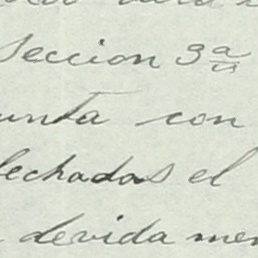 Seccion 3ª
unta con
fechadas el
devida men